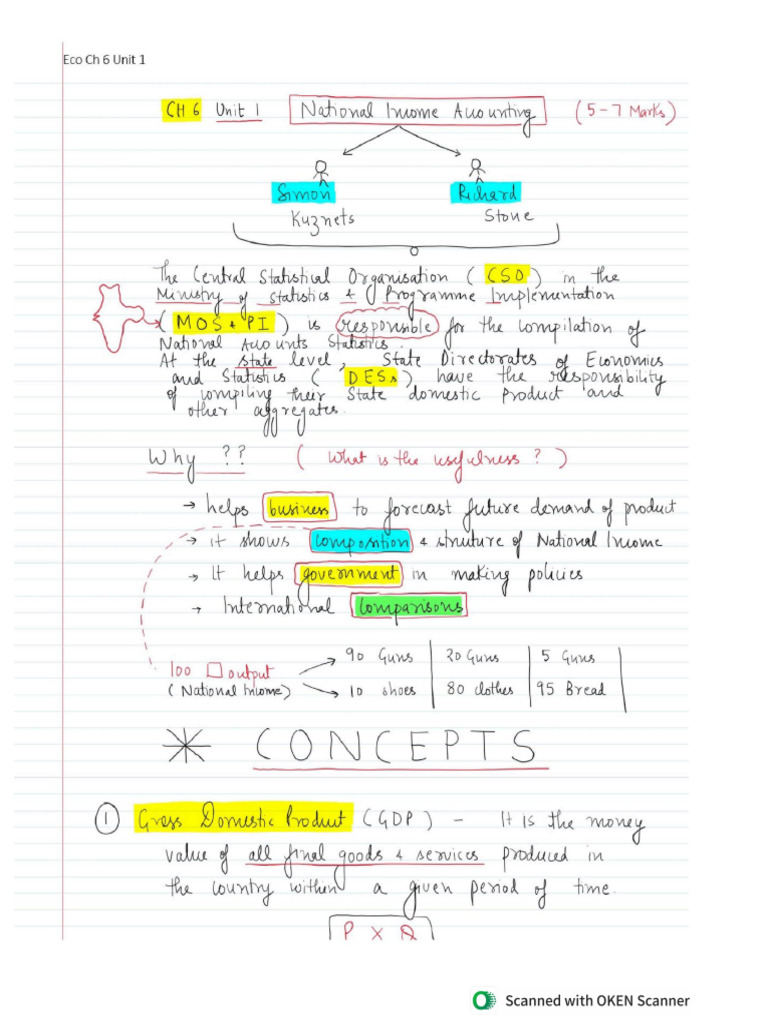 Eco Ch 6 Unit 1
CH 6 Unit 1 National Income Accounting (5-7 Marks)
Simon Richard
Kuznets Stone
The Central Statistical Organisation (CSO) in the
Ministry of Statistics & Programme Implementation
(MOS & PI) is responsible for the compilation of
National Accounts Statistics.
At the state level, State Directorates of Economics
and Statistics (DESs) have the responsibility
of compiling their State domestic product and
other aggregates.
Why ?? (What is the usefulness?)
→ helps business to forecast future demand of product
→ it shows composition & structure of National Income
→ It helps government in making policies
→ International comparisons
100 □ output → 90 Guns | 20 Guns | 5 Guns |
(National Income) → 10 shoes | 80 clothes | 95 Bread |
* CONCEPTS
① Gross Domestic Product (GDP) - It is the money
value of all final goods & services produced in
the country within a given period of time.
P X Q
Scanned with OKEN Scanner